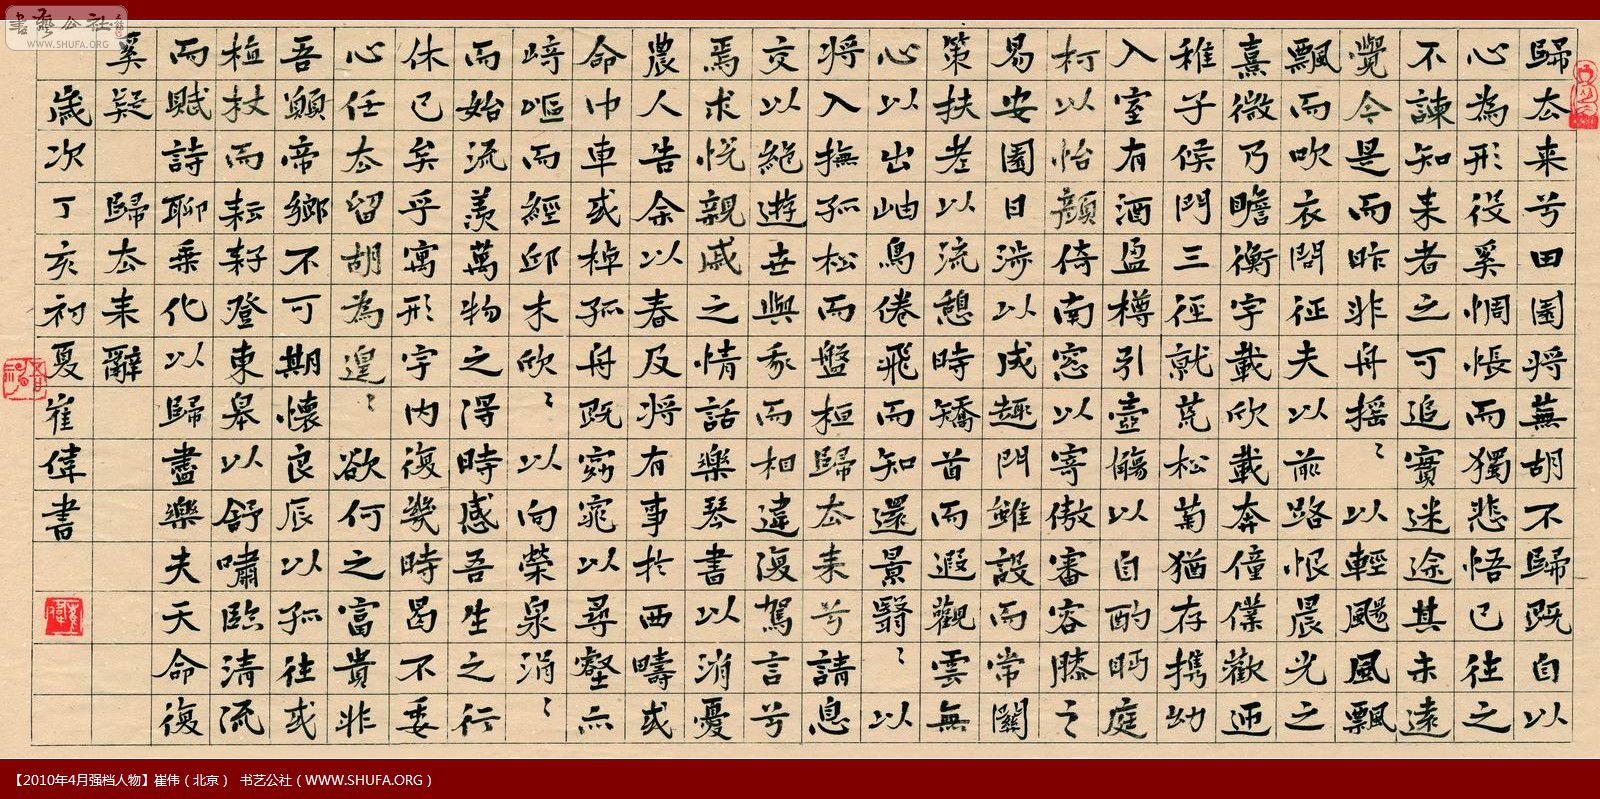 歸去来兮田園将蕪胡不歸既自以
心為形役奚惆悵而獨悲悟已往之
不諫知来者之可追實迷途其未遠
覺今是而昨非舟摇〻以輕颺風飄
飄而吹衣問征夫以前路恨晨光之
熹微乃瞻衡宇載欣載奔僮僕歡迎
稚子候門三徑就荒松菊猶存携幼
入室有酒盈樽引壺觴以自酌眄庭
柯以怡顔倚南窓以寄傲審容膝之
易安園日涉以成趣門雖設而常關
策扶老以流憩時矯首而遐觀雲無
心以出岫鳥倦飛而知還景翳〻以
将入撫孤松而盤桓歸去来兮請息
交以絶遊世與我而相違復駕言兮
焉求悦親戚之情話樂琴書以消憂
農人告余以春及将有事於西疇或
命巾車或棹孤舟既窈窕以尋壑亦
崎嶇而經邱木欣〻以向榮泉涓〻
而始流羡萬物之得時感吾生之行
休已矣乎寓形宇内復幾時曷不委
心任去留胡為遑〻欲何之富貴非
吾願帝鄉不可期懷良辰以孤往或
植杖而耘耔登東皋以舒嘯臨清流
而賦詩聊乘化以歸盡樂夫天命復
奚疑 歸去来辭
歲次丁亥初夏崔偉書
書藝公社
WWW.SHUFA.ORG
【2010年4月强档人物】崔伟（北京） 书艺公社（WWW.SHUFA.ORG）